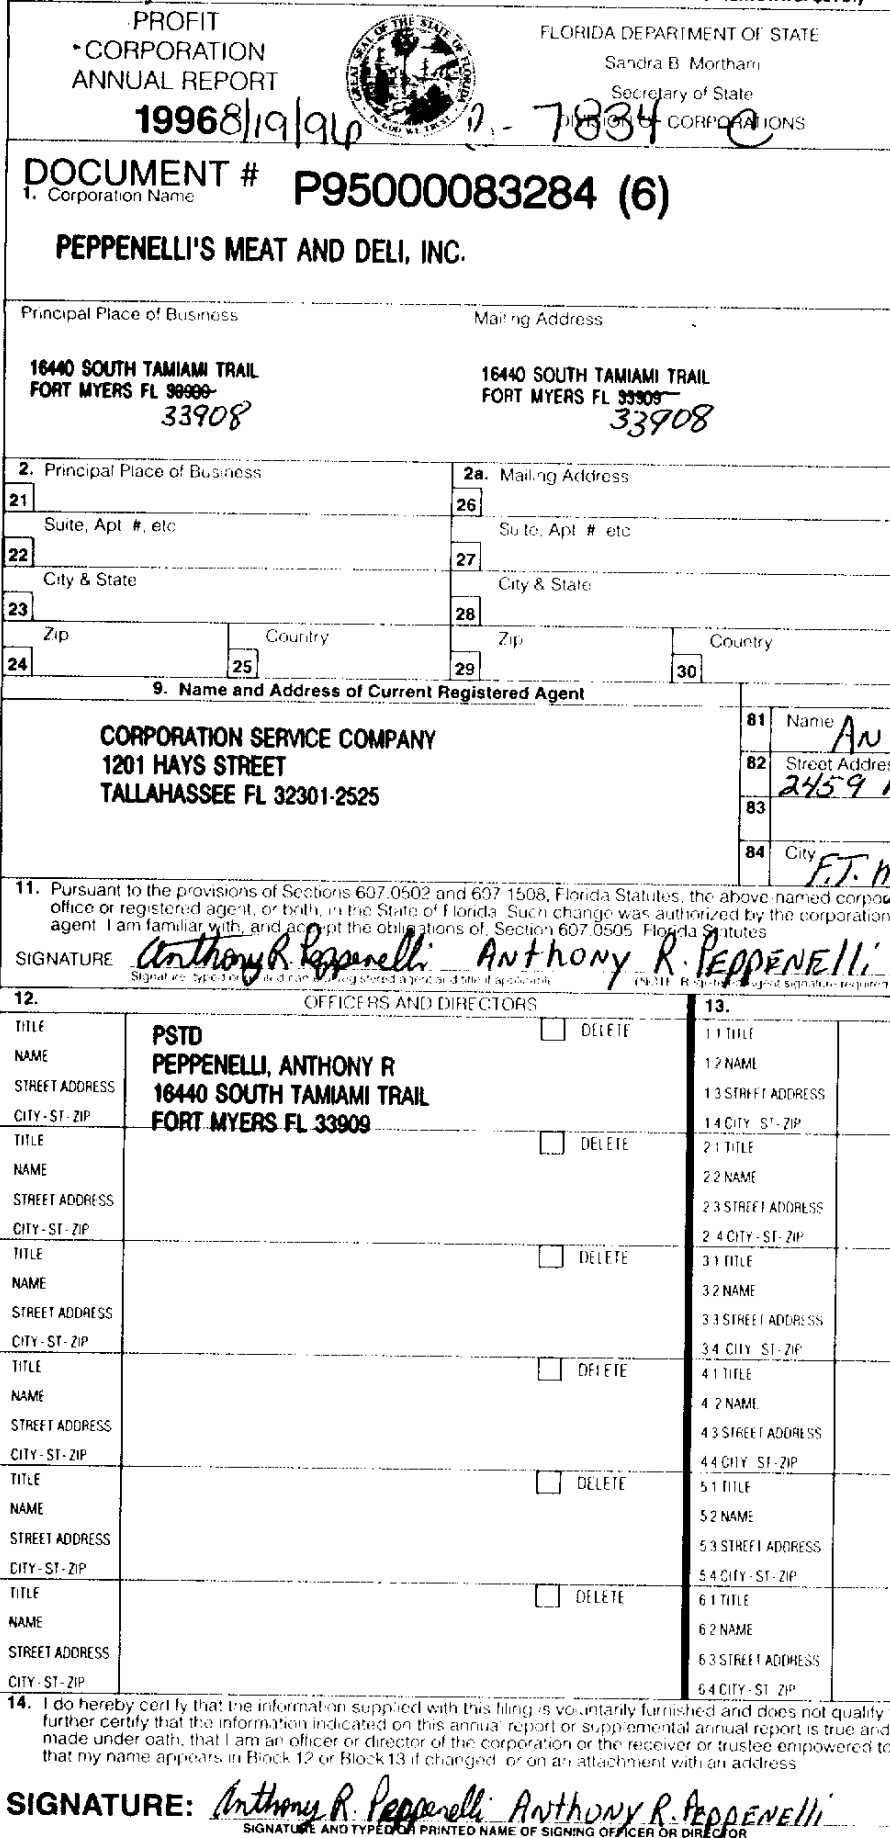 PROFIT
CORPORATION
ANNUAL REPORT
1996 8/19/96
GREAT SEAL OF THE STATE OF FLORIDA
IN GOD WE TRUST
FLORIDA DEPARTMENT OF STATE
Sandra B. Mortham
Secretary of State
DIVISION OF CORPORATIONS
7834
DOCUMENT # P95000083284 (6)
1. Corporation Name
PEPPENELLI'S MEAT AND DELI, INC.
Principal Place of Business
Mailing Address
16440 SOUTH TAMIAMI TRAIL
FORT MYERS FL 33909
33908
16440 SOUTH TAMIAMI TRAIL
FORT MYERS FL 33909
33908
2. Principal Place of Business
2a. Mailing Address
21
26
Suite, Apt. #, etc
Suite, Apt. #, etc
22
27
City & State
City & State
23
28
Zip
Country
Zip
Country
24
25
29
30
9. Name and Address of Current Registered Agent
CORPORATION SERVICE COMPANY
1201 HAYS STREET
TALLAHASSEE FL 32301-2525
81 Name AN
82 Street Addres
2459
83
84 City F.T. M
11. Pursuant to the provisions of Sections 607.0502 and 607.1508, Florida Statutes, the above-named corpor
office or registered agent, or both, in the State of Florida. Such change was authorized by the corporation
agent. I am familiar with, and accept the obligations of, Section 607.0505, Florida Statutes
SIGNATURE Anthony R. Peppenelli ANTHONY R. PEPPENELLI
Signature, typed or printed name of registered agent and title if applicable (NOTE: Registered Agent signature required
12. OFFICERS AND DIRECTORS
13.
TITLE PSTD DELETE
NAME PEPPENELLI, ANTHONY R
STREET ADDRESS 16440 SOUTH TAMIAMI TRAIL
CITY-ST-ZIP FORT MYERS FL 33909
1.1 TITLE
1.2 NAME
1.3 STREET ADDRESS
1.4 CITY-ST-ZIP
TITLE DELETE
NAME
STREET ADDRESS
CITY-ST-ZIP
2.1 TITLE
2.2 NAME
2.3 STREET ADDRESS
2.4 CITY-ST-ZIP
TITLE DELETE
NAME
STREET ADDRESS
CITY-ST-ZIP
3.1 TITLE
3.2 NAME
3.3 STREET ADDRESS
3.4 CITY-ST-ZIP
TITLE DELETE
NAME
STREET ADDRESS
CITY-ST-ZIP
4.1 TITLE
4.2 NAME
4.3 STREET ADDRESS
4.4 CITY-ST-ZIP
TITLE DELETE
NAME
STREET ADDRESS
CITY-ST-ZIP
5.1 TITLE
5.2 NAME
5.3 STREET ADDRESS
5.4 CITY-ST-ZIP
TITLE DELETE
NAME
STREET ADDRESS
CITY-ST-ZIP
6.1 TITLE
6.2 NAME
6.3 STREET ADDRESS
6.4 CITY-ST-ZIP
14. I do hereby certify that the information supplied with this filing is voluntarily furnished and does not qualify
further certify that the information indicated on this annual report or supplemental annual report is true and
made under oath, that I am an officer or director of the corporation or the receiver or trustee empowered to
that my name appears in Block 12 or Block 13 if changed, or on an attachment with an address
SIGNATURE: Anthony R. Peppenelli ANTHONY R. PEPPENELLI
SIGNATURE AND TYPED OR PRINTED NAME OF SIGNING OFFICER OR DIRECTOR